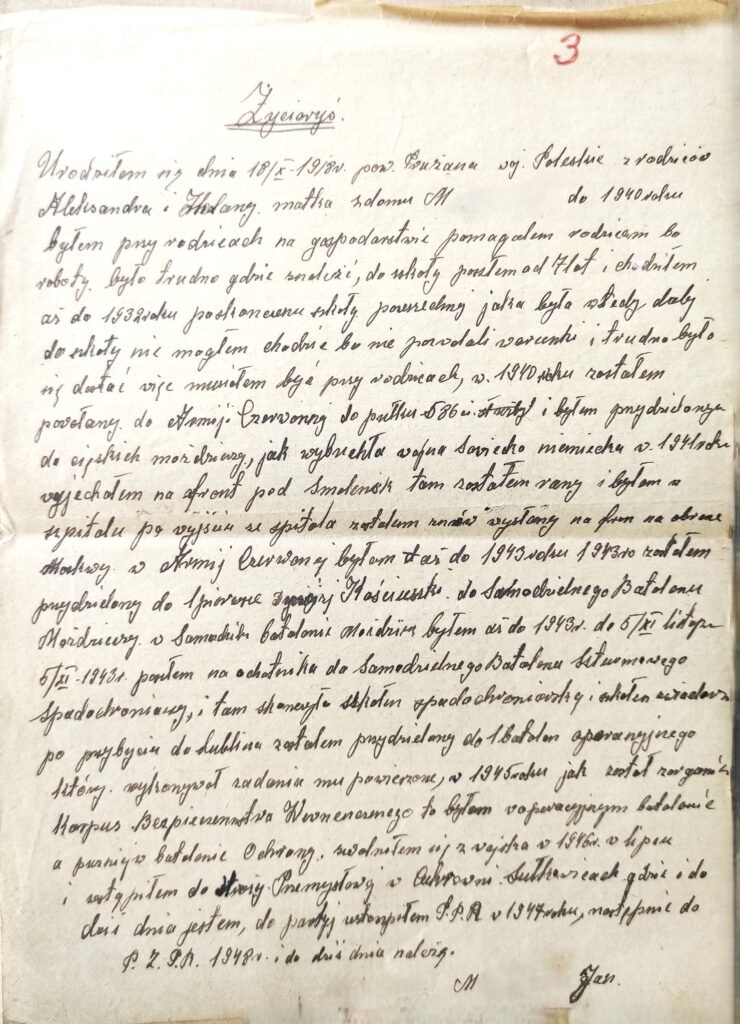 3
Życiorys.
Urodziłem się dnia 18/X-1918r. pow. Prużana woj. Poleskie z rodziców
Aleksandra i matka zdomu M do 1940 roku
byłem przy rodzicach na gospodarstwie pomagałem rodzicom bo
roboty. było trudno gdzie znaleźć, do szkoły poszłem od 7 lat i chodziłem
aż do 1932 roku poskonceniu szkoły powszechny jaka była wtedy dalij
do szkoły nie mogłem chodzić bo nie pozwalali warunki i trudno było
się dostać więc musiałem być przy rodzicach, w. 1940 roku zostałem
powołany. do Armji Czerwonny do pułku 586 i byłem przydzielony
do ciężkich moździerzy, jak wybuchła wojna Sowiecko niemiecka w 1941 roku
wyjechałem na front pod Smoleńsk tam zostałem rany i byłem w
szpitalu po wyjściu ze szpitala zostałem znów wysłany na fron na obrone
Moskwy. w Armij Czerwonej byłem aż do 1943 roku 1943 ro zostałem
przydzielony do 1 Kościuszki. do Samodzielnego Batalonu
Moździerzy. w batalonie byłem aż do 1943r. do 5/XI listop.
5/XI-1943r. poszłem na ochotnika do Samodzielnego Batalonu Szturmowego
Spadochroniowy, i tam skonczyłe szkołen spadochroniarsky i szkołen
po przybyciu do Lublina zostałem przydzielony do 1 batalon operacyjnego
który. wykonywał zadania mu powierzone, w 1945 roku jak został
Korpus Bezpieczenstwa Wewnencznego to byłem w operacyjnym batalonie
a puzniej w batalonie Ochrony. zwolniłem się z wojska w 1946r. w lipcu
i wstąpiłem do Straży Przemysłowy w Cukrowni. gdzie i do
dziś dnia jestem, do partji wstompiłem P.P.R w 1947 roku, następnie do
P. Z. P. R. 1948 r. i do dziś dnia należę.
M Jan.